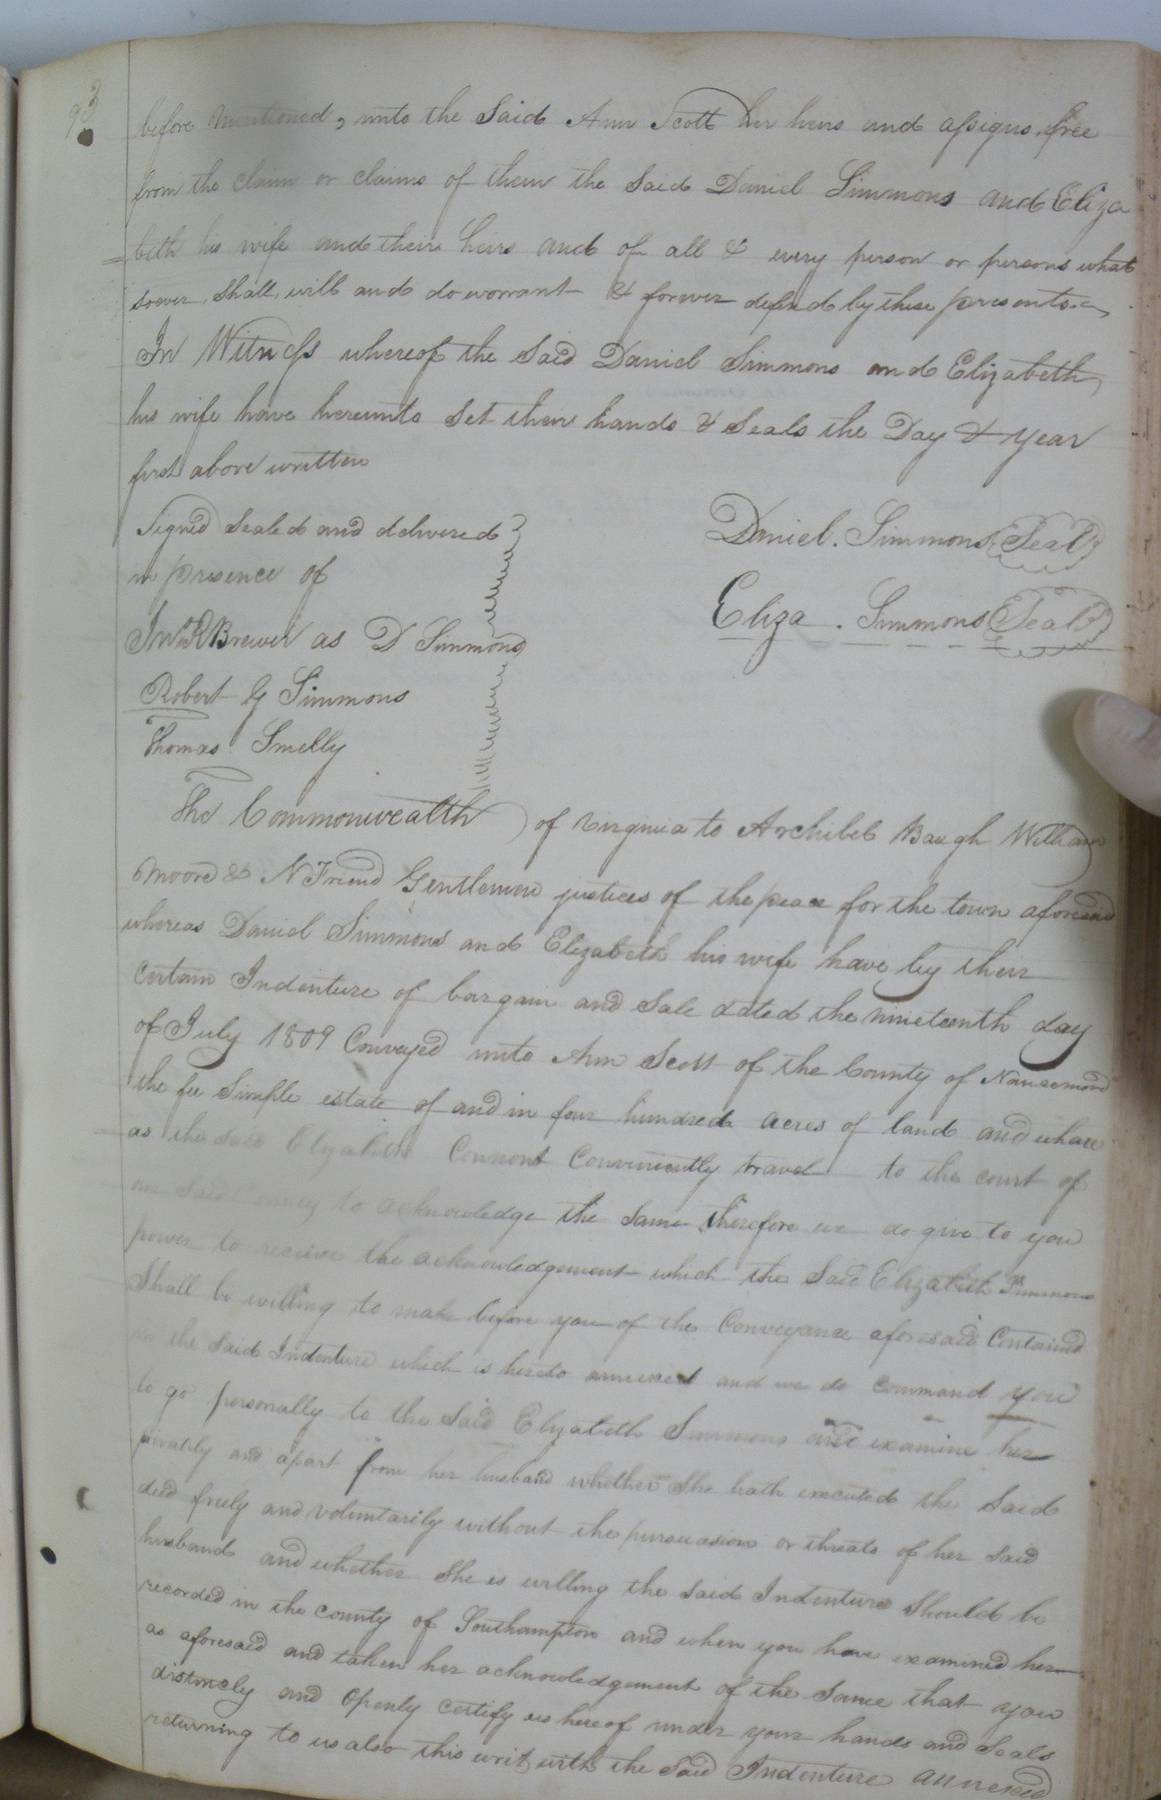 93
before Mentioned, unto the Said Ann Scott her heirs and assigns, free
from the claim or claims of them the Said Daniel Simmons and Eliza
beth his wife and their heirs and of all & every person or persons what
soever, Shall, will and do warrant & forever defend by these presents.
In Witness whereof the Said Daniel Simmons and Elizabeth
his wife have hereunto Set their hands & Seals the Day & year
first above written
Signed Sealed and delivered
in presence of
Jno R Brewer as D Simmons
Robert G Simmons
Thomas Smelly
Daniel. Simmons Seal
Eliza. Simmons Seal
The Commonwealth of Virginia to Archibel Baugh William
Moore & N Friend Gentlemen justices of the peace for the town aforesaid
whereas Daniel Simmons and Elizabeth his wife have by their
Certain Indenture of bargain and Sale dated the nineteenth day
of July 1809 Conveyed unto Ann Scott of the County of Nansemond
the fee Simple estate of and in four hundred acres of land and where
as the said Elizabeth Cannont Conveniently travel to the court of
our Said County to acknowledge the same therefore we do give to you
power to receive the acknowledgement which the Said Elizabeth Simmons
Shall be willing to make before you of the Conveyance aforesaid Contained
in the Said Indenture which is hereto annexed and we do command you
to go personally to the Said Elizabeth Simmons and examine her
privately and apart from her husband whether She hath executed the Said
deed freely and voluntarily without the pursuasion or threats of her said
husband and whether She is willing the said Indenture Should be
recorded in the county of Southampton and when you have examined her
as aforesaid and taken her acknowledgement of the same that you
distinctly and openly certify us hereof under your hands and Seals
returning to us also this writ with the Said Indenture annexed